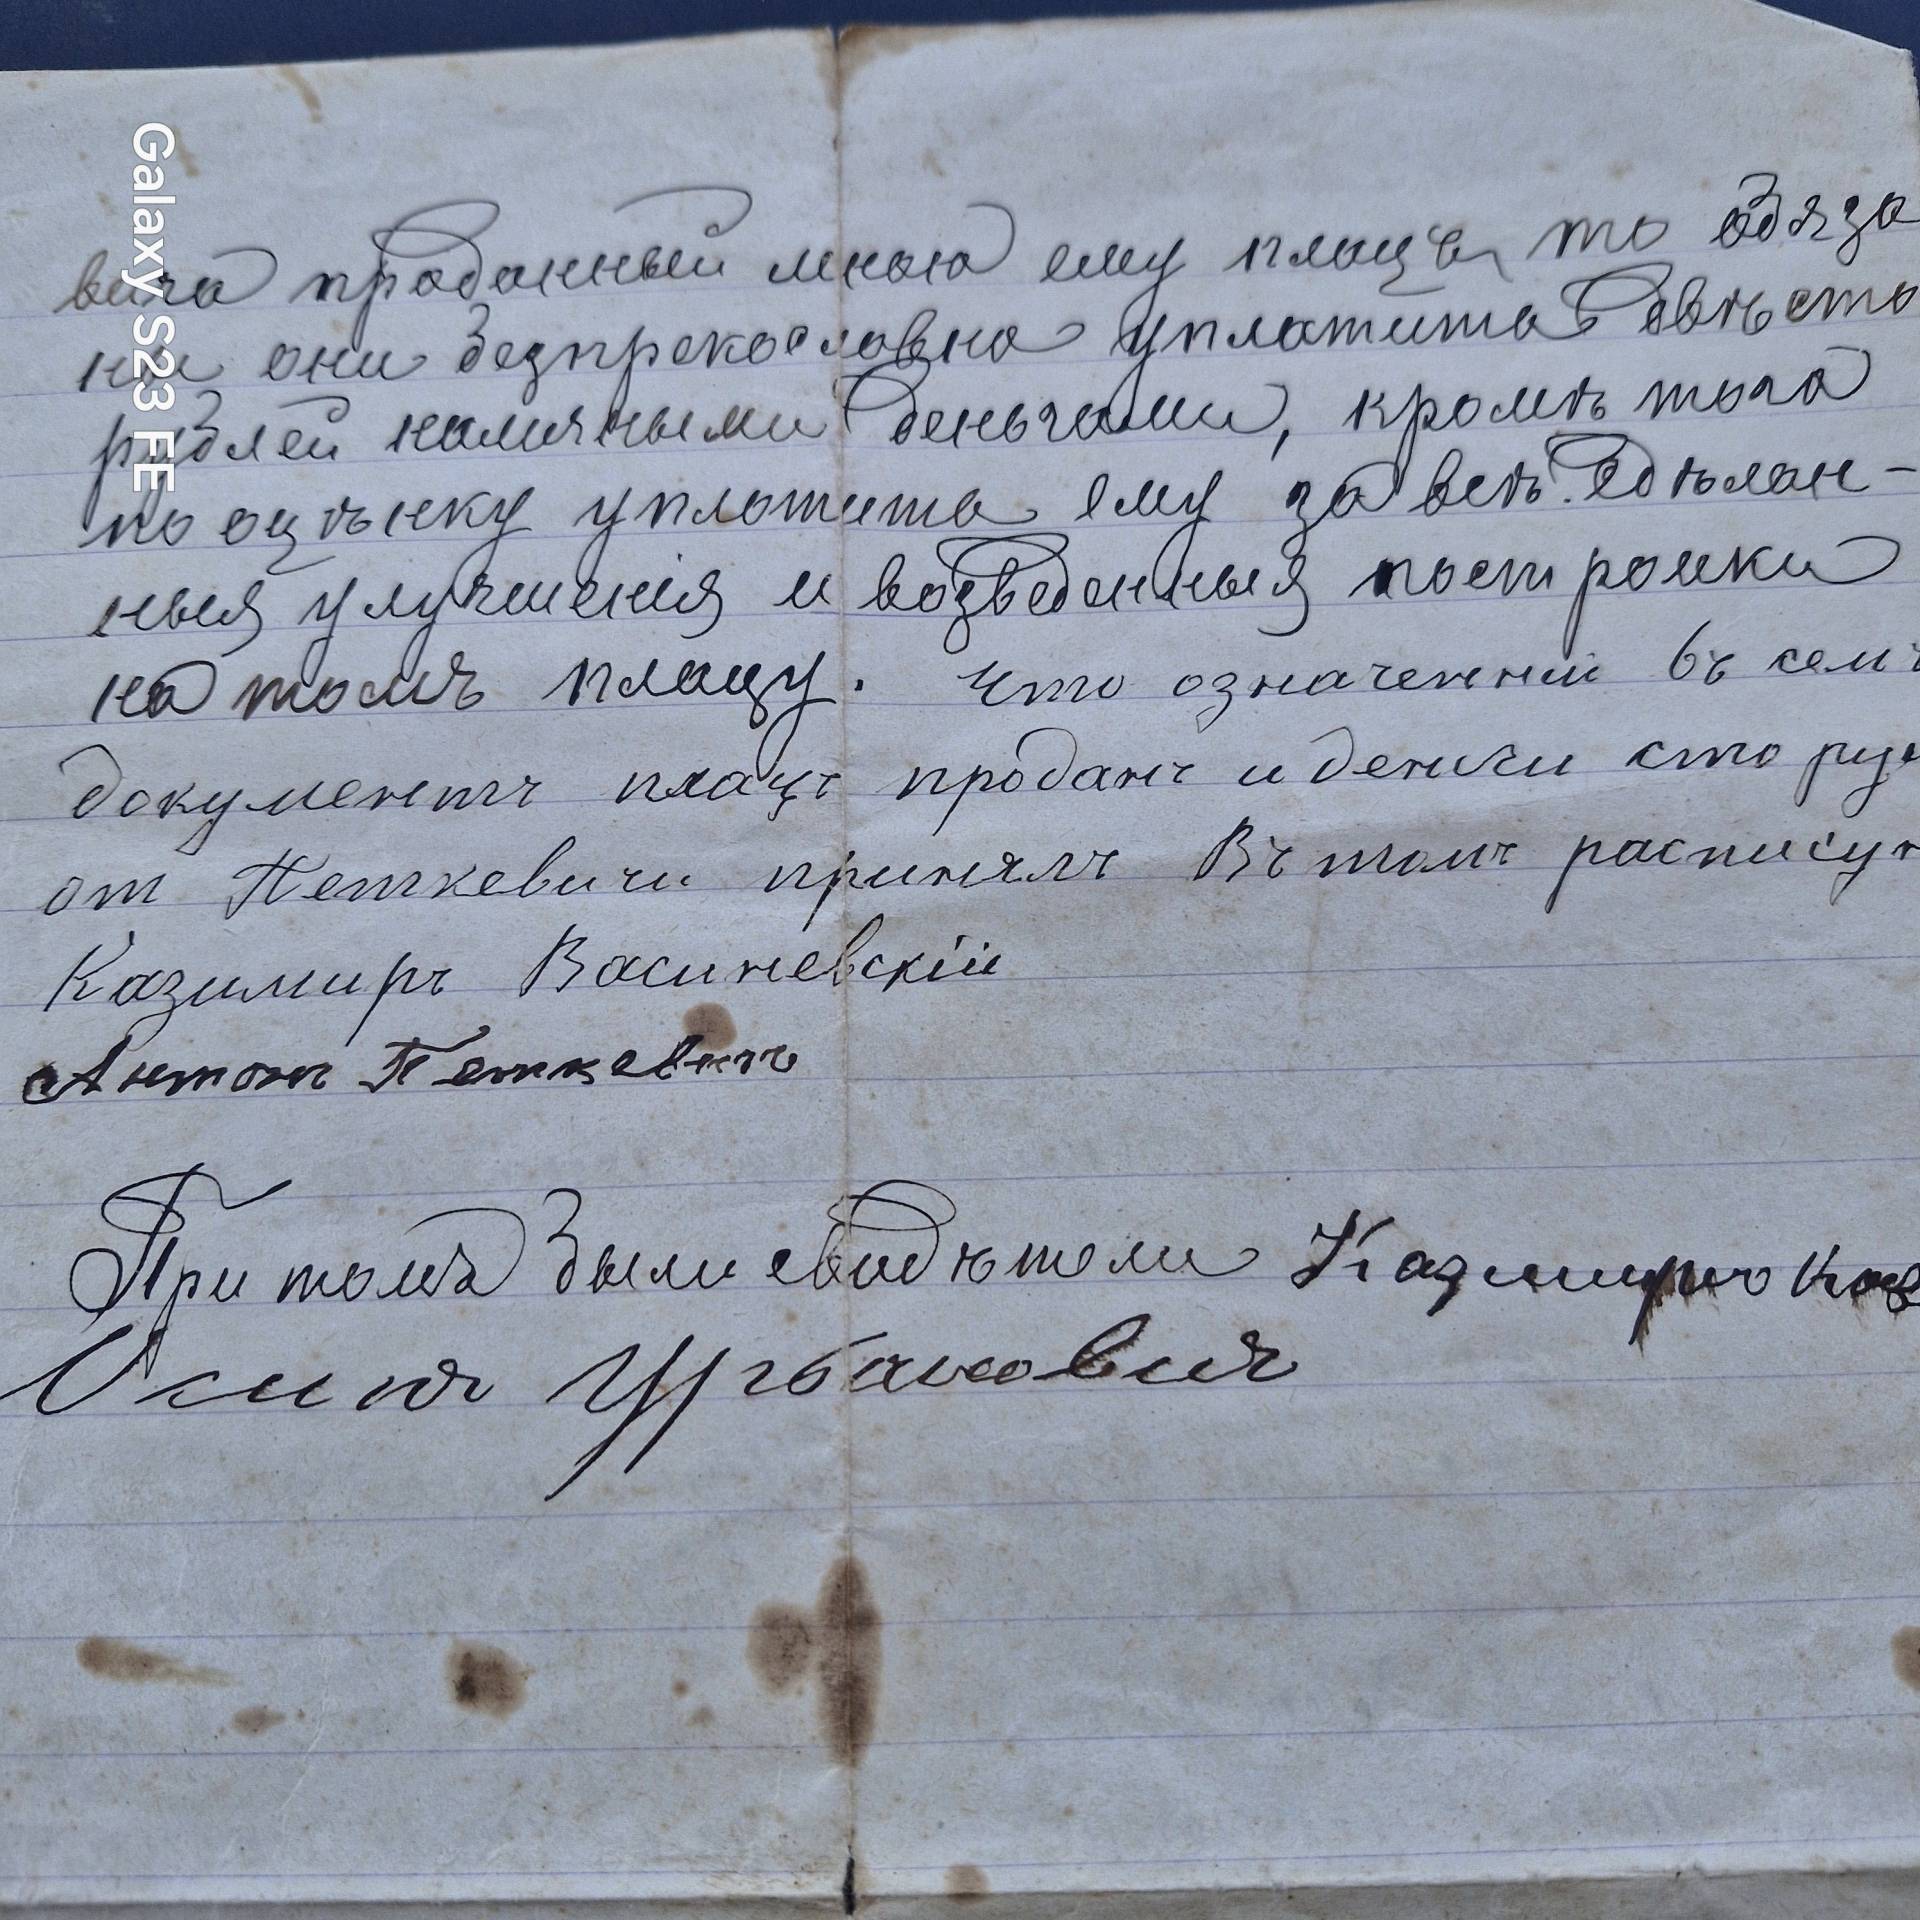 вича проданный мною ему плацъ, то обяза
ни они безпрекословно уплатить двѣсто
рублей наличными деньгами, кромѣ того
по оцѣнку уплотить ему за всѣ сдѣлан-
ныя улучшенія и возведенныя постройки
на томъ плацу. Что означенній въ семъ
документъ плацъ проданъ и деньги сто
от Петкевичи принялъ Въ томъ
Казимиръ Василевскій
Антонъ Петкевичъ
При томъ были свидѣтели Казимиръ
Осипъ Урбановичъ
Galaxy S23 FE